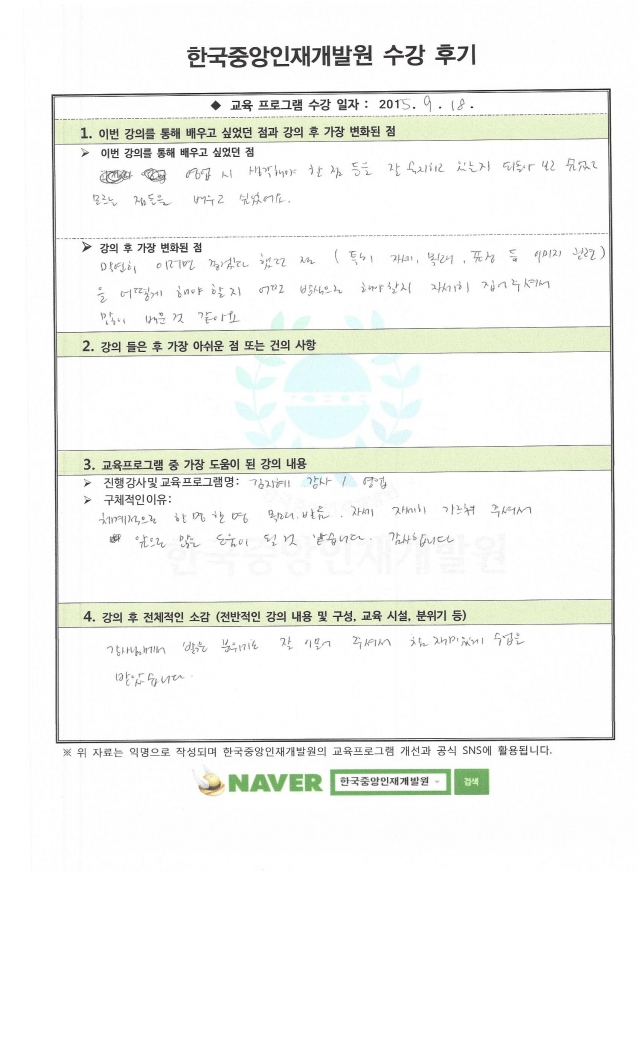 한국중앙인재개발원 수강 후기
◆ 교육 프로그램 수강 일자 : 2015. 9. 18.
1. 이번 강의를 통해 배우고 싶었던 점과 강의 후 가장 변화된 점
➢ 이번 강의를 통해 배우고 싶었던 점
영업 시 생각해야 할 점 등을 잘 숙지하고 있는지 되돌아 보고 싶었고
모르는 점들을 배우고 싶었어요.
➢ 강의 후 가장 변화된 점
막연히 이러면 되겠다 했던 점 ( 특히 자세, 목소리, 표정 등 이미지 관련)
을 어떻게 해야 할지 어떤 방식으로 해야할지 자세히 집어주셔서
많이 배운 것 같아요
2. 강의 들은 후 가장 아쉬운 점 또는 건의 사항
3. 교육프로그램 중 가장 도움이 된 강의 내용
➢ 진행강사및 교육프로그램명: 김지혜 강사 / 영업
➢ 구체적인이유:
체계적으로 한명 한명 목소리, 발음, 자세 자세히 가르쳐 주셔서
앞으로 많은 도움이 될 것 같습니다. 감사합니다
한국중앙인재개발원
4. 강의 후 전체적인 소감 (전반적인 강의 내용 및 구성, 교육 시설, 분위기 등)
강사님께서 밝은 분위기로 잘 이끌어 주셔서 참 재미있게 수업을
받았습니다.
※ 위 자료는 익명으로 작성되며 한국중앙인재개발원의 교육프로그램 개선과 공식 SNS에 활용됩니다.
NAVER 한국중앙인재개발원 검색